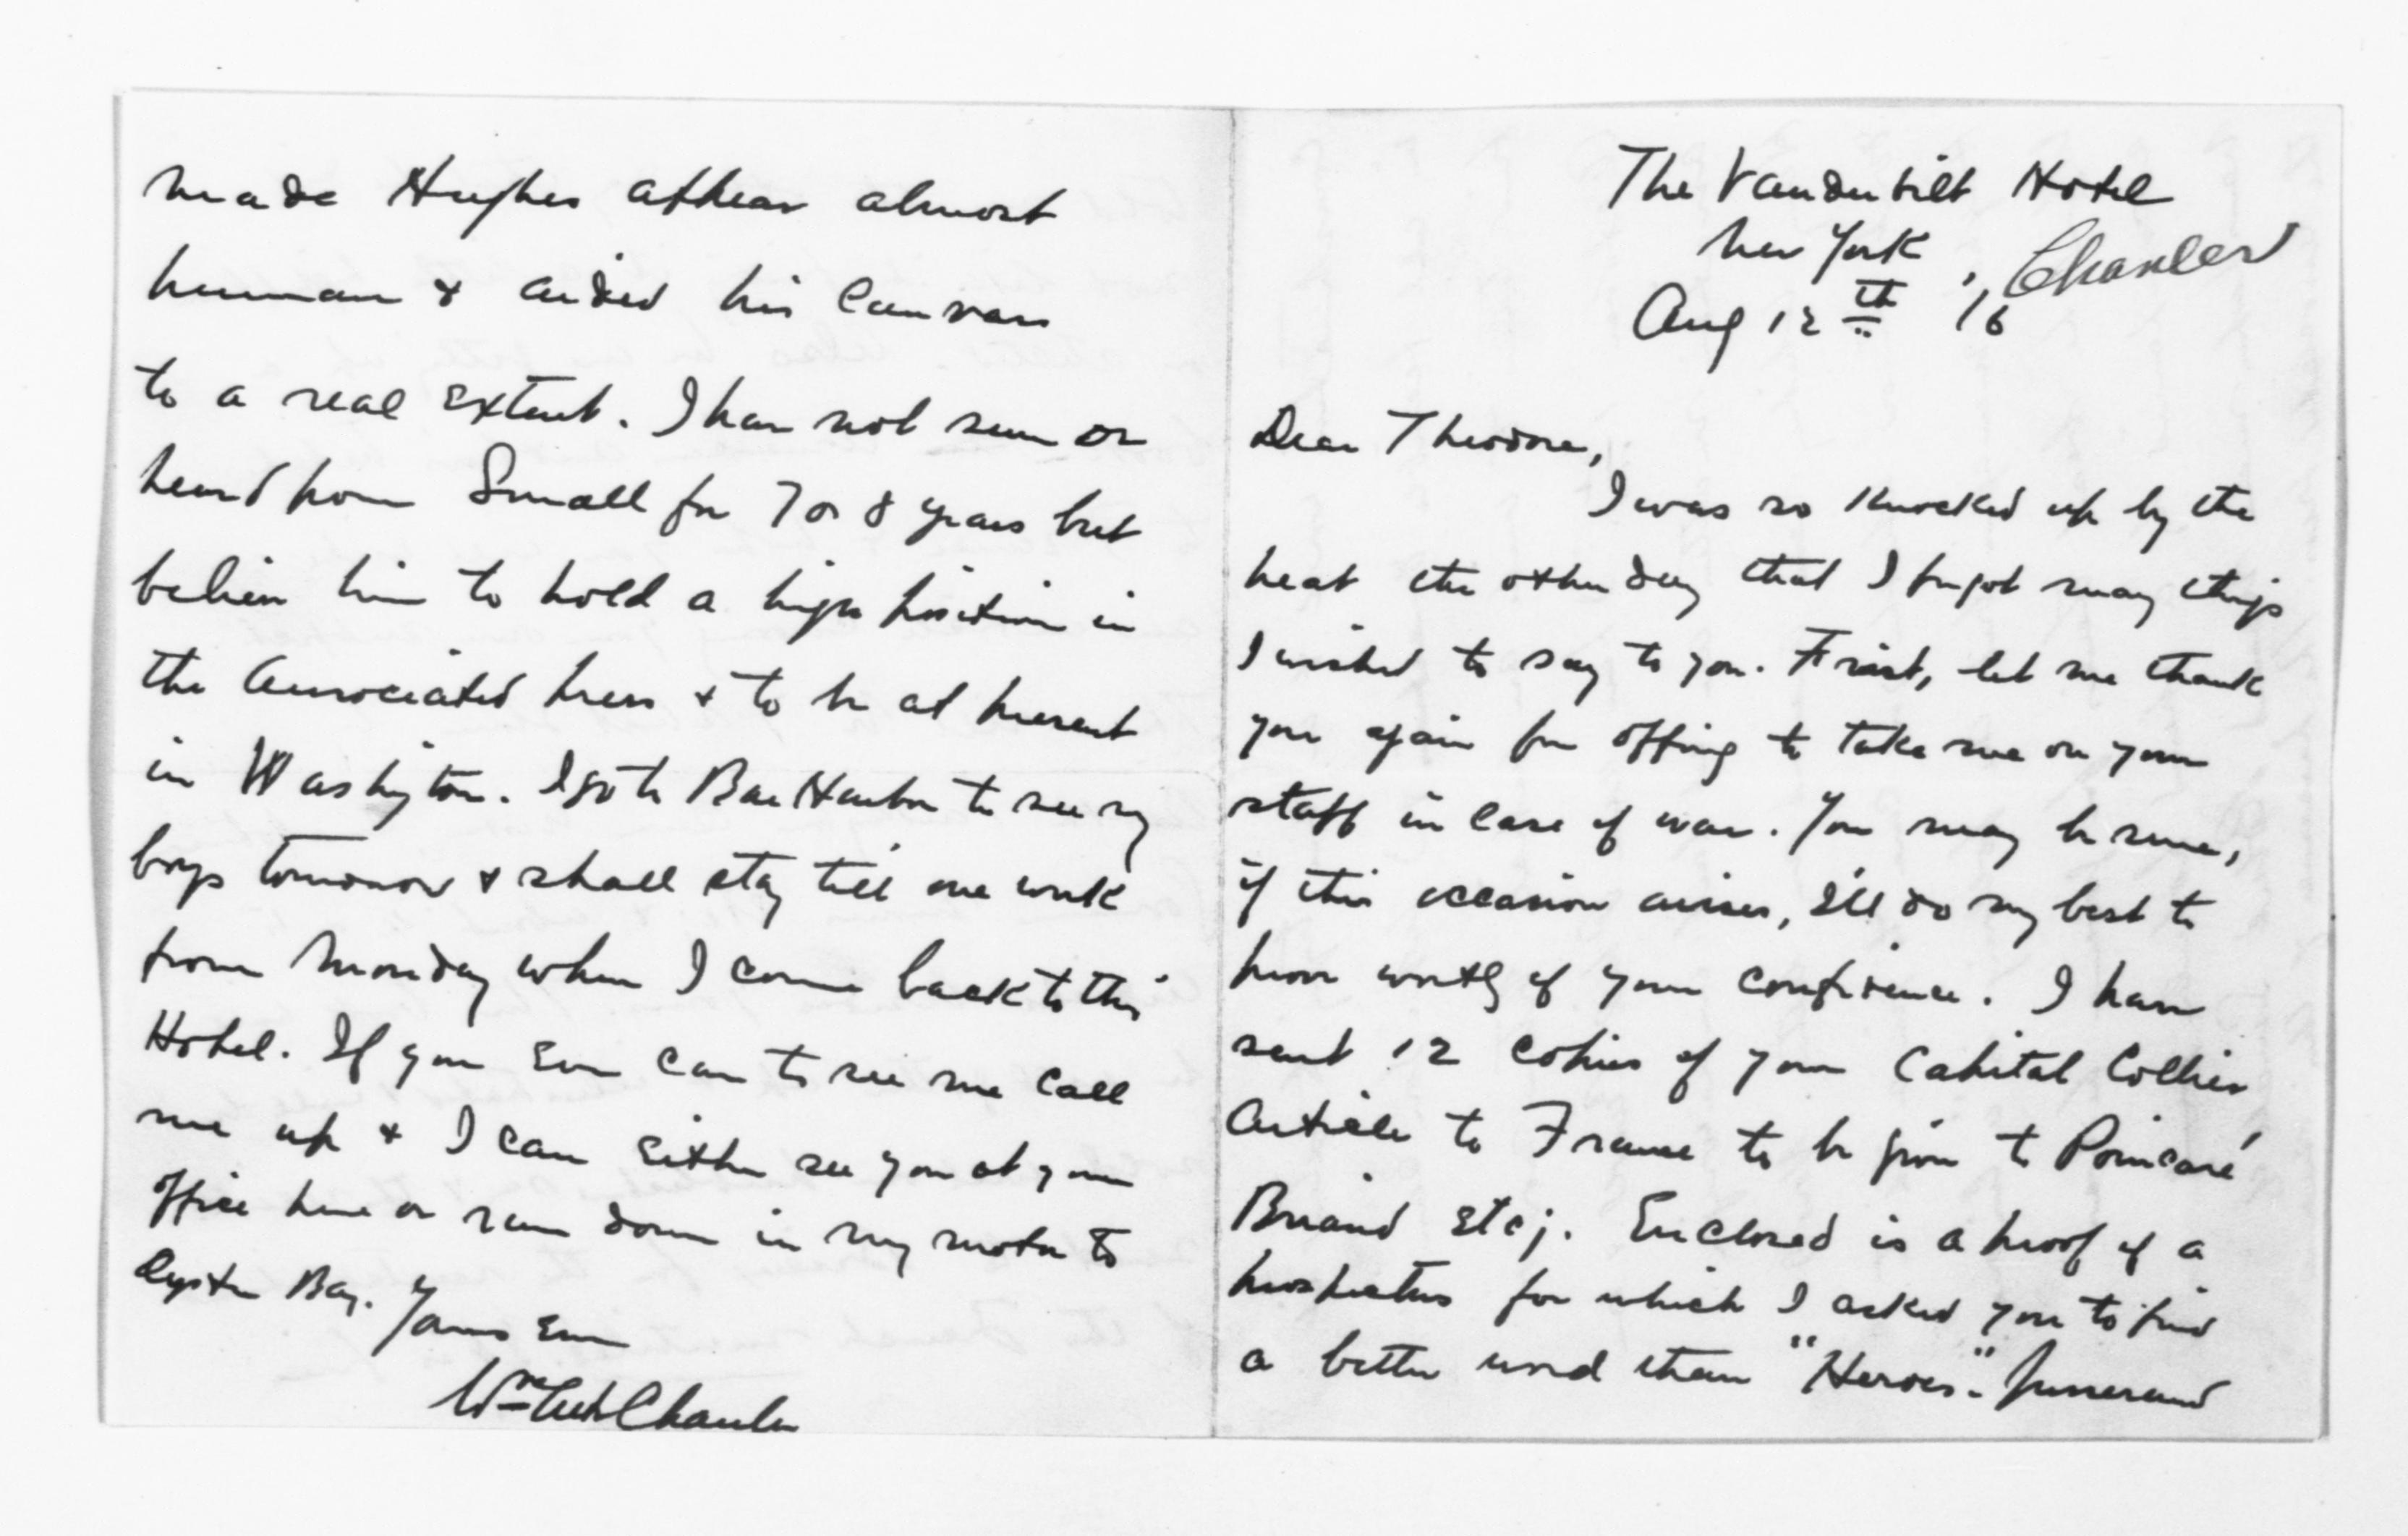 The Vanderbilt Hotel
New York
Chanler
Aug 12th '16
Dear Theodore,
I was so knocked up by the
heat the other day that I forgot many things
I wished to say to you. First, let me thank
you again for offring to take me on your
staff in case of war. You may be sure,
if this occasion arises, I'll do my best to
prove worthy of your confidence. I have
sent 12 copies of your capital Collier
article to France to be given to Poincaré
Briand etc;. Enclosed is a proof of a
prospectus for which I asked you to find
a better word than "Heroes".
made Hughes appear almost
human & aided his canvass
to a real extent. I have not seen or
heard from Small for 7 or 8 years but
believe him to hold a high position in
the Associated Press & to be at present
in Washington. I go to Bar Harbor to see my
boys tomorrow & shall stay till one week
from Monday when I come back to this
Hotel. If you ever care to see me call
me up & I can either see you at your
office here or run down in my motor to
Oyster Bay. Yours ever
Wm Astor Chanler